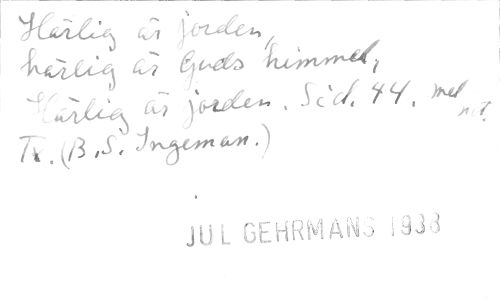 Härlig är jorden,
härlig är Guds himmel,
Härlig är jorden. Sid. 44. mel
not.
Tx. (B.S. Ingeman.)
JUL GEHRMANS 1938